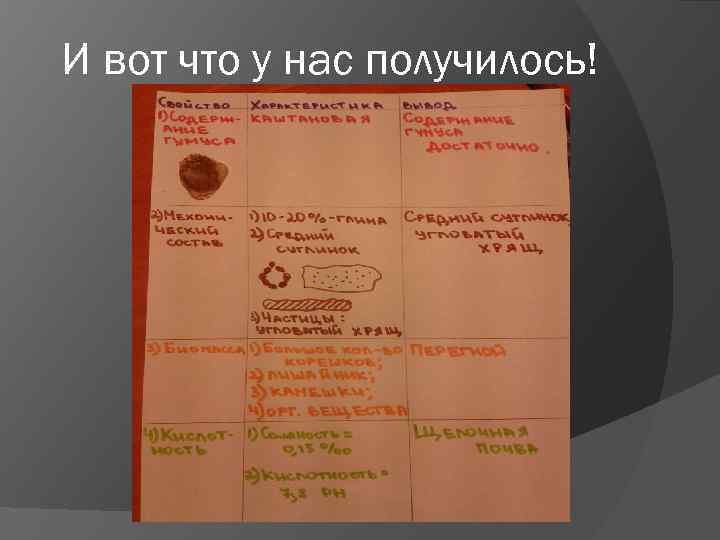 И вот что у нас получилось!
Свойство Характеристика Вывод
1) Содерж-
ание
гумуса
Каштановая
Содержание
гумуса
достаточно.
2) Механи-
ический
состав
1) 10-20%-глина
2) Средний
суглинок
3) Частицы:
угловатый хрящ
Средний суглинок,
угловатый
хрящ
3) Биомасса
1) Большое кол-во
корешков;
2) лишайник;
3) камешки;
4) орг. вещества
Перегной
4) Кислот-
ность
1) Солёность =
0,15 ‰
2) Кислотность =
7,8 PH
Щелочная
почва